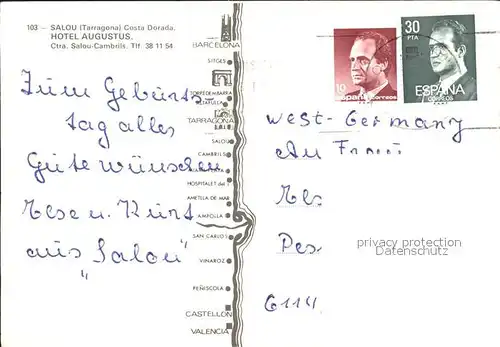 103 - SALOU (Tarragona) Costa Dorada.
HOTEL AUGUSTUS.
Ctra. Salou-Cambrils. Tlf 38 11 54
Zum Geburts
tag alles
Gute wünschen
Else u. Kurt
aus "Salou"
BARCELONA
SITGES
TORREDEMBARRA
ALTAFULLA
TARRAGONA
SALOU
CAMBRILS
HOSPITALET del I.
AMETLLA DE MAR
AMPOLLA
SAN CARLOS
VINAROZ
PEÑISCOLA
CASTELLON
VALENCIA
19
ESPAÑA CORREOS
30
PTA
ESPAÑA
CORREOS
West-Germany
An
Els
6114
privacy protection
Datenschutz